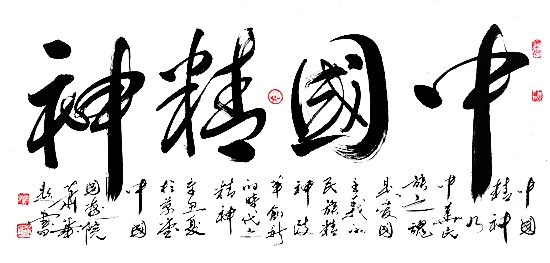 中國精神
中國
精神
乃
中華民
族之魂
是愛國
主義和
民族精
神改
革創新
的時代之
精神
夏
於京
中國
畫院
書